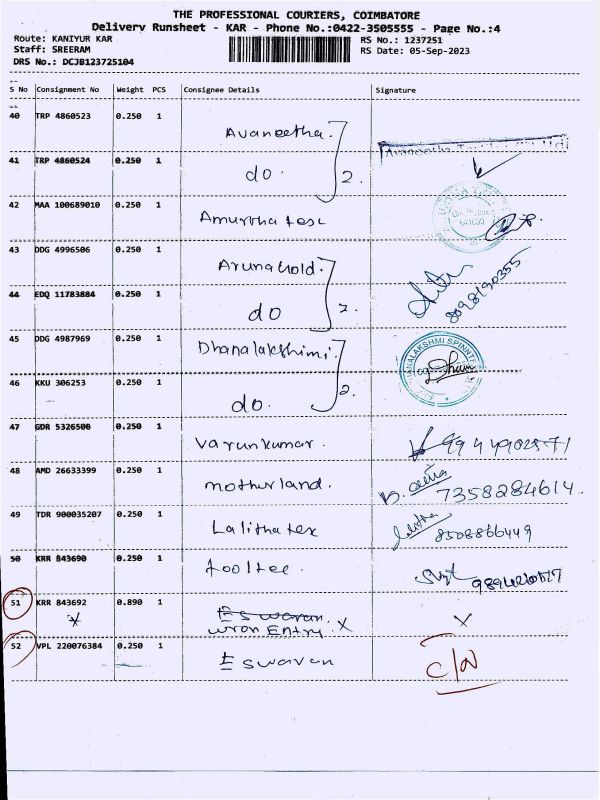 THE PROFESSIONAL COURIERS, COIMBATORE
Delivery Runsheet - KAR - Phone No.:0422-3505555 - Page No.:4
Route: KANIYUR KAR RS No.: 1237251
Staff: SREERAM RS Date: 05-Sep-2023
DRS No.: DCJB123725104
S No Consignment No Weight PCS Consignee Details Signature
40 TRP 4860523 0.250 1 Avaneetha.
41 TRP 4860524 0.250 1 do. 2.
42 MAA 100689010 0.250 1 Amurtha tex
43 DDG 4996506 0.250 1 Arunahold.
44 EDQ 11783884 0.250 1 do 2. 8098190355
45 DDG 4987969 0.250 1 Dhanalakshimi.
46 KKU 306253 0.250 1 do. 2.
47 GDR 5326506 0.250 1 Varunkumar.
48 AMD 26633399 0.250 1 motherland. 7358284614.
49 TDR 900035207 0.250 1 Lalitha tex Lalitha 8508866449
50 KRR 843690 0.250 1 tooltec.
51 KRR 843692 0.890 1 Eswaran. X
X wron Entry. X
52 VPL 220076384 0.250 1 Eswaran C/N